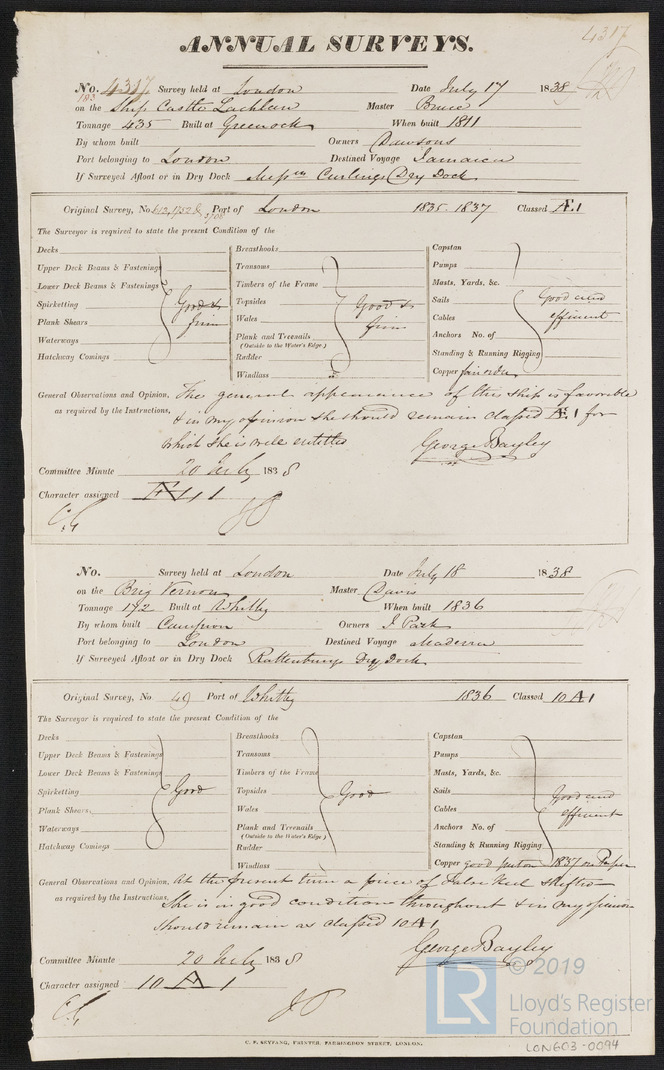 4317
ANNUAL SURVEYS.
No. 4317 Survey held at London Date July 17 1838
193
on the Ship Castle Lachlan Master Bruce
Tonnage 435 Built at Greenock When built 1811
By whom built Owners Dawsons
Port belonging to London Destined Voyage Jamaica
If Surveyed Afloat or in Dry Dock Messrs Curlings Dry Dock
Original Survey, No. Port of London 1835-1837 Classed Æ1
The Surveyor is required to state the present Condition of the
Decks Breasthooks Capstan
Upper Deck Beams & Fastenings Transoms Pumps
Lower Deck Beams & Fastenings Timbers of the Frame Masts, Yards, &c.
Spirketting Good & Topsides Good & Sails Good and
Plank Shears firm Wales firm Cables efficient
Waterways Plank and Treenails Anchors No. of
(Outside to the Water's Edge.)
Hatchway Comings Rudder Standing & Running Rigging
Windlass Copper fair order
General Observations and Opinion, The general appearance of this ship is favorable
as required by the Instructions, & in my opinion she should remain classed Æ1 for
which she is well entitled George Bayley
Committee Minute 20 July 1838
Character assigned Æ 1
No. Survey held at London Date July 18 1838
on the Brig Vernon Master Davis
Tonnage 172 Built at Whitby When built 1836
By whom built Campion Owners J. Park
Port belonging to London Destined Voyage Madeira
If Surveyed Afloat or in Dry Dock Rattenburys Dry Dock
Original Survey, No. 49 Port of Whitby 1836 Classed 10 A 1
The Surveyor is required to state the present Condition of the
Decks Breasthooks Capstan
Upper Deck Beams & Fastenings Transoms Pumps
Lower Deck Beams & Fastenings Timbers of the Frame Masts, Yards, &c.
Spirketting Good Topsides Good Sails Good and
Plank Shears. Wales Cables efficient
Waterways Plank and Treenails Anchors No. of
(Outside to the Water's Edge.)
Hatchway Comings Rudder Standing & Running Rigging
Windlass Copper good put on 1837 on Paper
General Observations and Opinion, At the present time a piece of False Keel shifted
as required by the Instructions, She is in good condition throughout & in my opinion
should remain as classed 10 A 1
George Bayley
Committee Minute 20 July 1838
Character assigned 10 A 1
© 2019
LR
Lloyd's Register
Foundation
C. F. SEYFANG, PRINTER, FARRINGDON STREET, LONDON.
LON603-0094